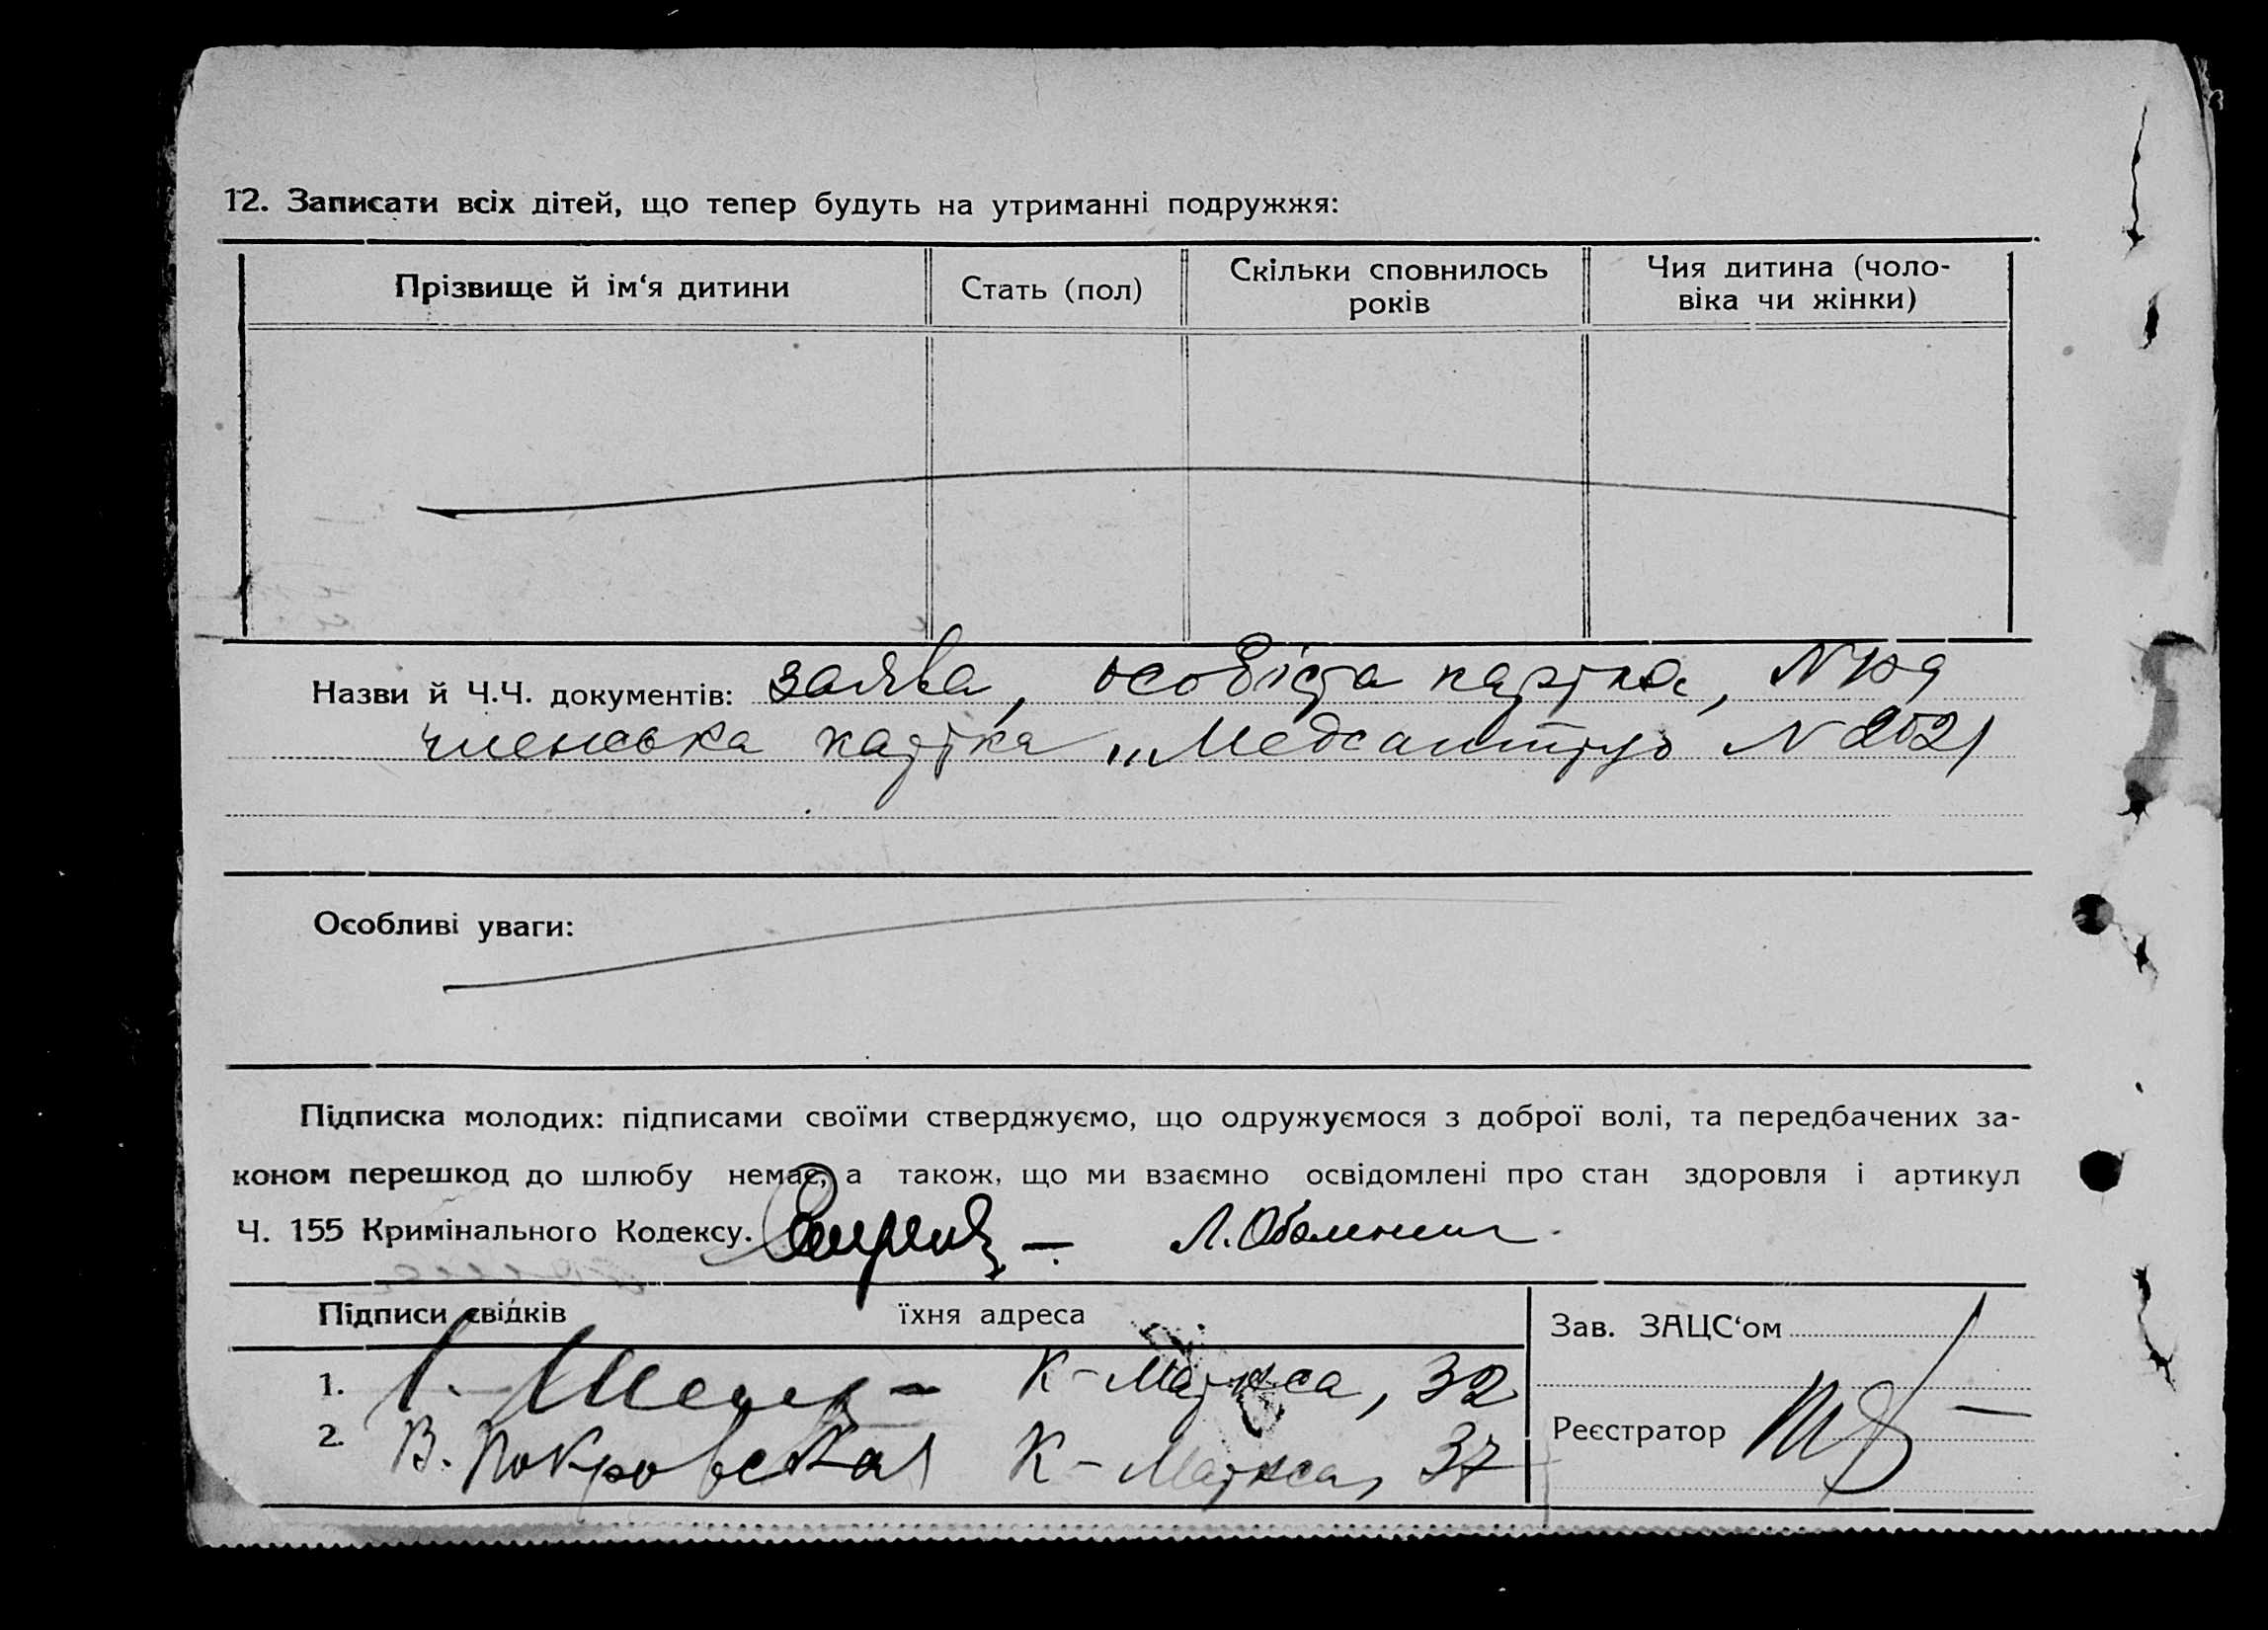 12. Записати всіх дітей, що тепер будуть на утриманні подружжя:
Прізвище й ім‘я дитини
Стать (пол)
Скільки сповнилось
років
Чия дитина (чоло-
віка чи жінки)
Назви й Ч.Ч. документів: заява, особіста картка, N
членська картка „Медсантруд N 2521
Особливі уваги:
Підписка молодих: підписами своїми стверджуємо, що одружуємося з доброї волі, та передбачених за-
коном перешкод до шлюбу немає, а також, що ми взаємно освідомлені про стан здоровля і артикул
Ч. 155 Кримінального Кодексу. Л.
Підписи свідків їхня адреса
Зав. ЗАЦС‘ом
1. К-Маркса, 32
2. В. Покровская К-Маркса, 37
Реєстратор